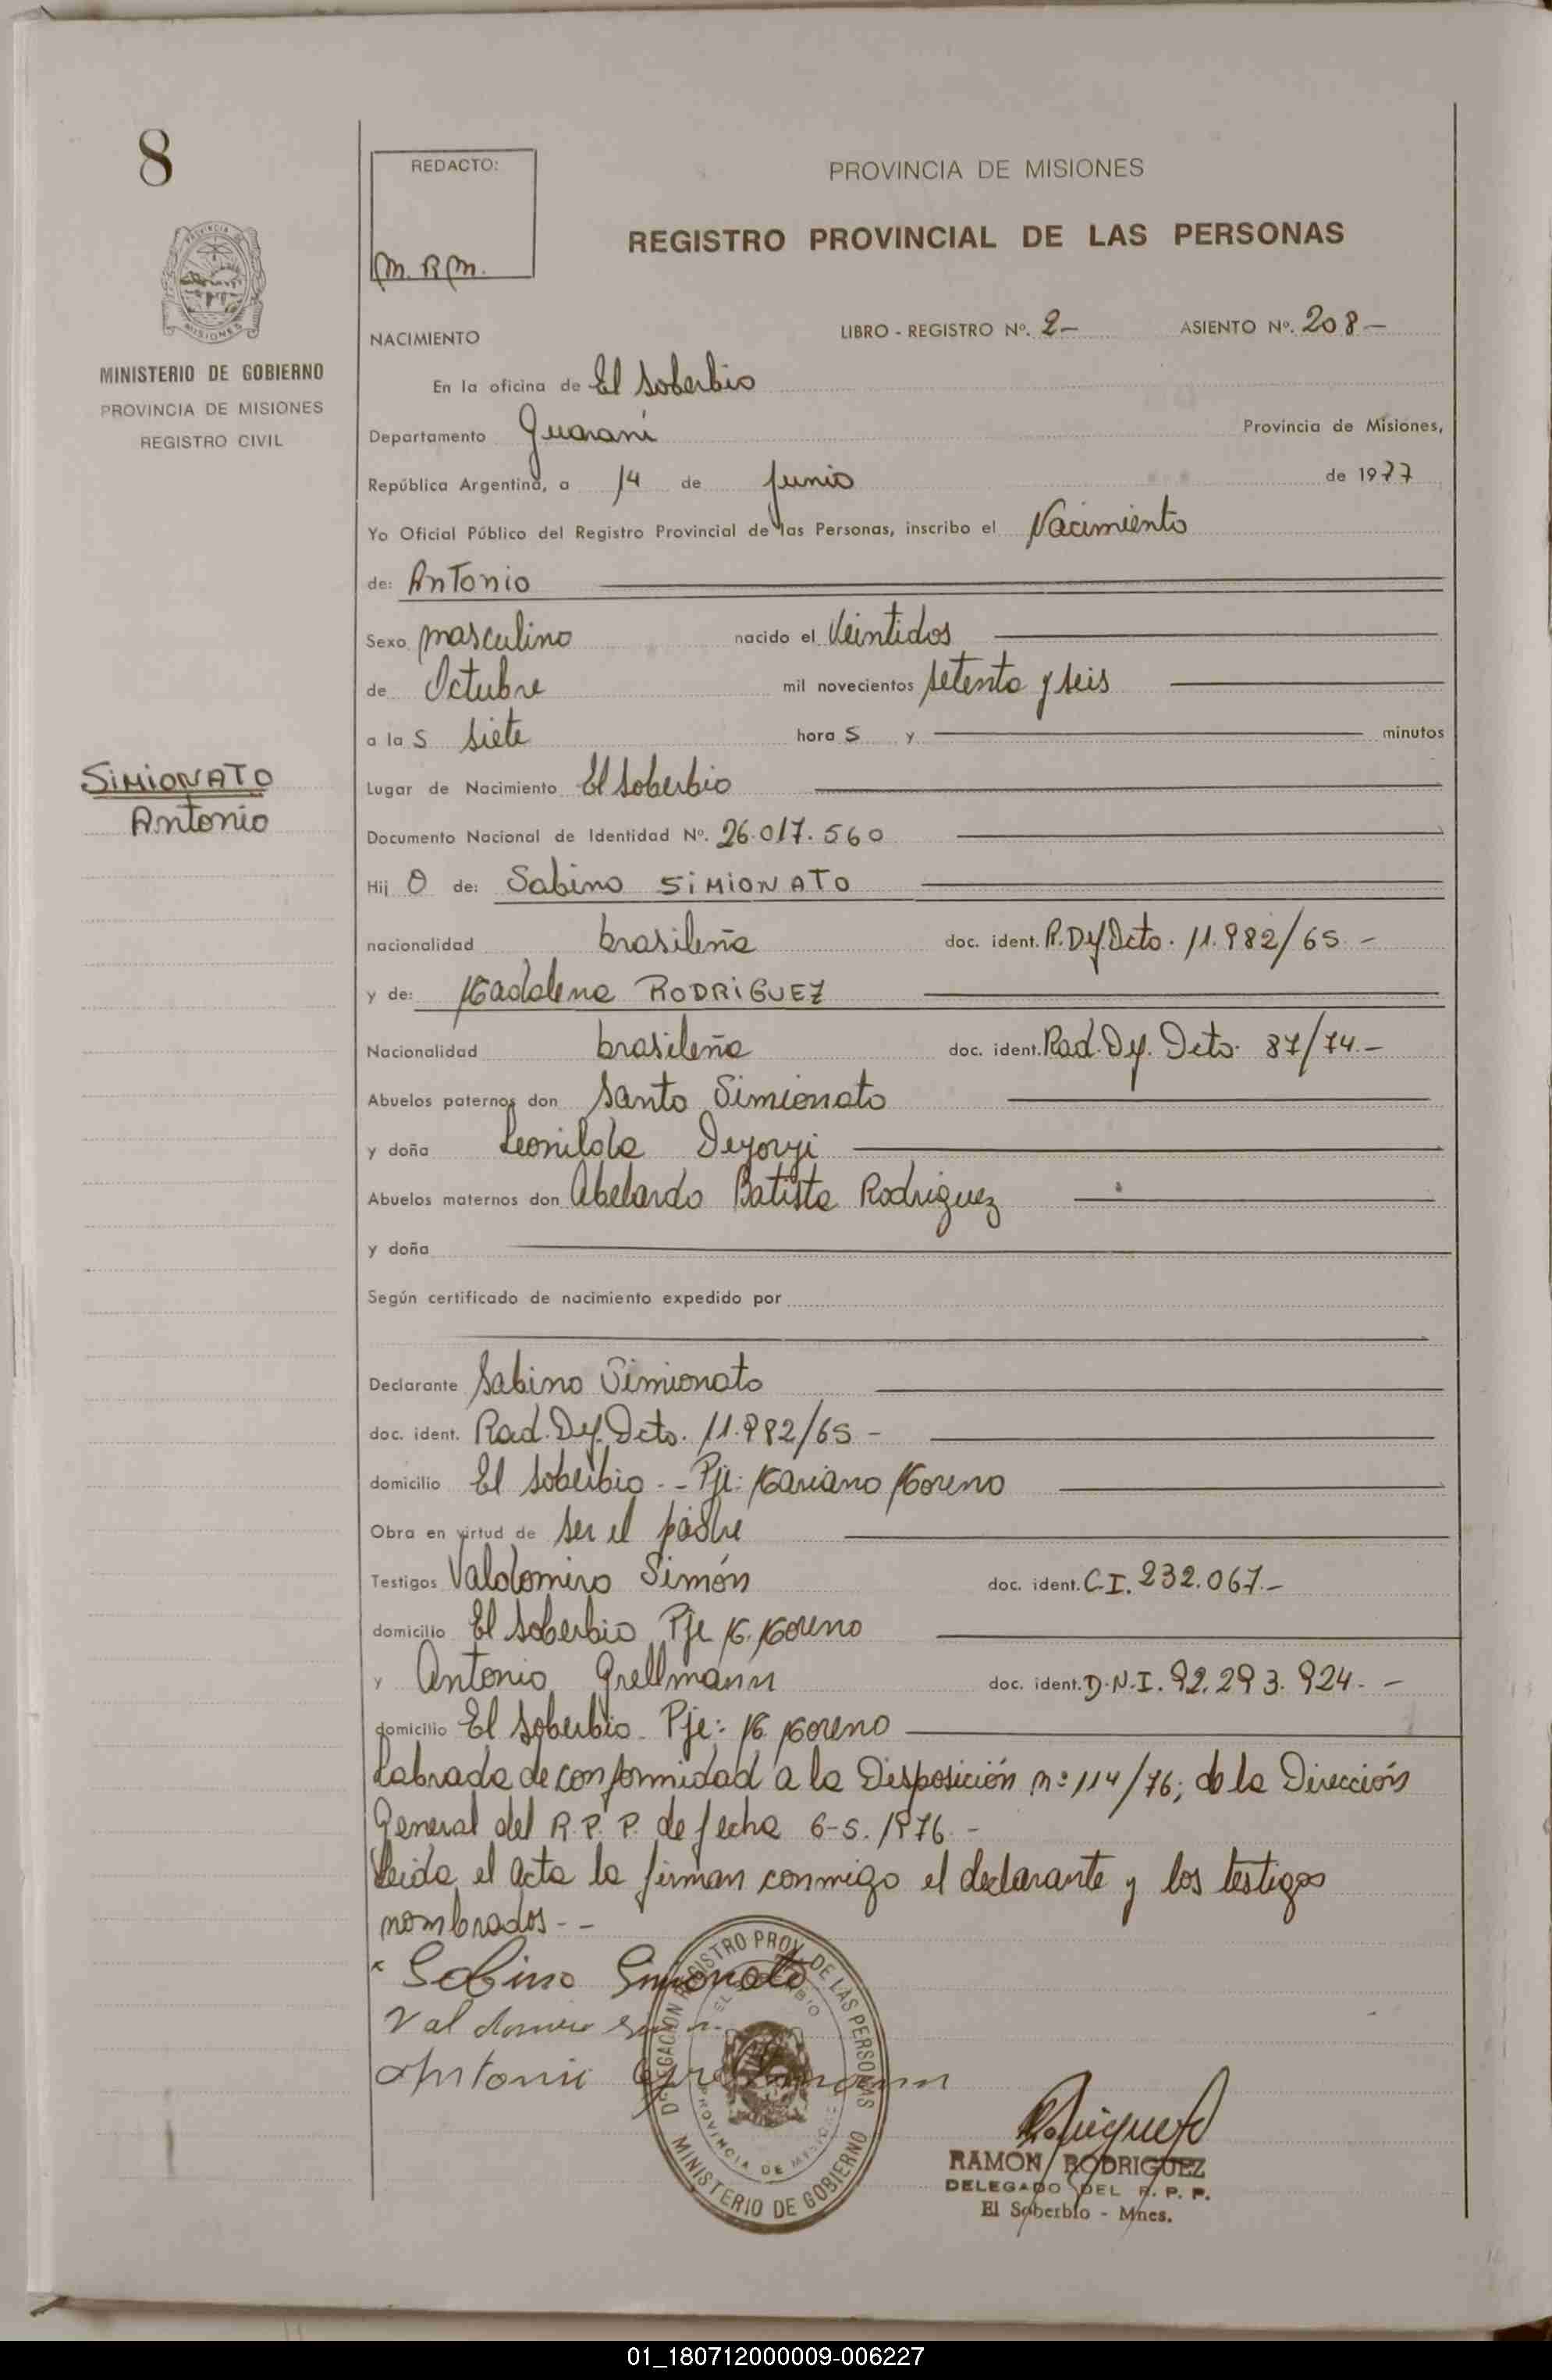 8
REDACTO:
M. R M.
PROVINCIA DE MISIONES
REGISTRO PROVINCIAL DE LAS PERSONAS
PROVINCIA DE
MISIONES
MINISTERIO DE GOBIERNO
PROVINCIA DE MISIONES
REGISTRO CIVIL
NACIMIENTO LIBRO - REGISTRO Nº. 2- ASIENTO Nº. 208-
En la oficina de El Soberbio
Departamento Guaraní Provincia de Misiones,
República Argentina, a 14 de Junio de 1977
Yo Oficial Público del Registro Provincial de las Personas, inscribo el Nacimiento
de: Antonio
Sexo masculino nacido el Veintidos
de Octubre mil novecientos setenta y seis
a la s siete hora s y minutos
SIMIONATO
Antonio
Lugar de Nacimiento El Soberbio
Documento Nacional de Identidad Nº. 26.017.560
Hij o de: Sabino SIMIONATO
nacionalidad brasileña doc. ident. R.Dy.Dcto. 11.982/65.-
y de: Madalena RODRIGUEZ
Nacionalidad brasileña doc. ident. Rad.Dy. Dcto. 87/74.-
Abuelos paternos don Santo Simionato
y doña Leonilda Deyoryi
Abuelos maternos don Abelardo Batista Rodriguez
y doña
Según certificado de nacimiento expedido por
Declarante Sabino Simionato
doc. ident. Rad.Dy.Dcto. 11.982/65-
domicilio El Soberbio.- Pje: Mariano Moreno
Obra en virtud de ser el padre
Testigos Valdomiro Simón doc. ident. C.I. 232.067.-
domicilio El Soberbio Pje M. Moreno
y Antonio Grellmann doc. ident. D.N.I. 92.293.924.-
domicilio El Soberbio. Pje: M. Moreno
Labrada de conformidad a la Disposición nº 114/76; de la Dirección
General del R.P.P. de fecha 6-5.1976.-
Leida el acta la firman conmigo el declarante y los testigos
nombrados.--
Sabino Simionato
Valdomiro
Antonio Grellmann
DELEGACION REGISTRO PROV. DE LAS PERSONAS
EL SOBERBIO
PROVINCIA DE MISIONES
MINISTERIO DE GOBIERNO
RAMON RODRIGUEZ
DELEGADO DEL R. P. P.
El Soberbio - Mnes.
01_180712000009-006227